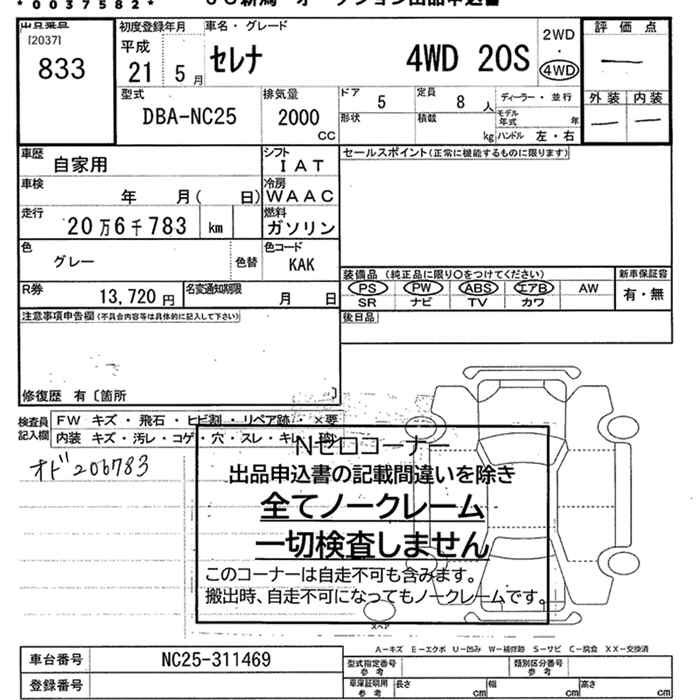 *0037582*
出品番号
[2037]
833
初度登録年月
平成
21 5月
車名・グレード
セレナ 4WD 20S
2WD
・
4WD
評価点
—
外装 内装
— —
型式
DBA-NC25
排気量
2000
cc
ドア 5
定員 8人
ディーラー・並行
形状
積載 kg
モデル年式 年
ハンドル 左・右
車歴
自家用
シフト
IAT
セールスポイント(正常に機能するものに限ります)
車検
年 月( 日)
冷房
WAAC
走行
20万6千783 km
燃料
ガソリン
色
グレー
色替
色コード
KAK
装備品 (純正品に限り○をつけてください)
新車保証書
PS PW ABS エアB AW
SR ナビ TV カワ
有・無
R券
13,720円
名変通知期限
月 日
後日品
注意事項申告欄(不具合内容等は具体的に記入して下さい)
修復歴 有〔箇所 〕
検査員記入欄
FW キズ・飛石・ヒビ割・リペア跡・×要
内装 キズ・汚レ・コゲ・穴・スレ・キレ
オド206783
Nゼロコーナー
出品申込書の記載間違いを除き
全てノークレーム
一切検査しません
このコーナーは自走不可も含みます。
搬出時、自走不可になってもノークレームです。
スペア
A-キズ E-エクボ U-凹み W-補修跡 S-サビ C-腐食 XX-交換済
車台番号
NC25-311469
型式指定番号
参考
類別区分番号
参考
登録番号
車庫証明用
参考
長さ cm
幅 cm
高さ cm